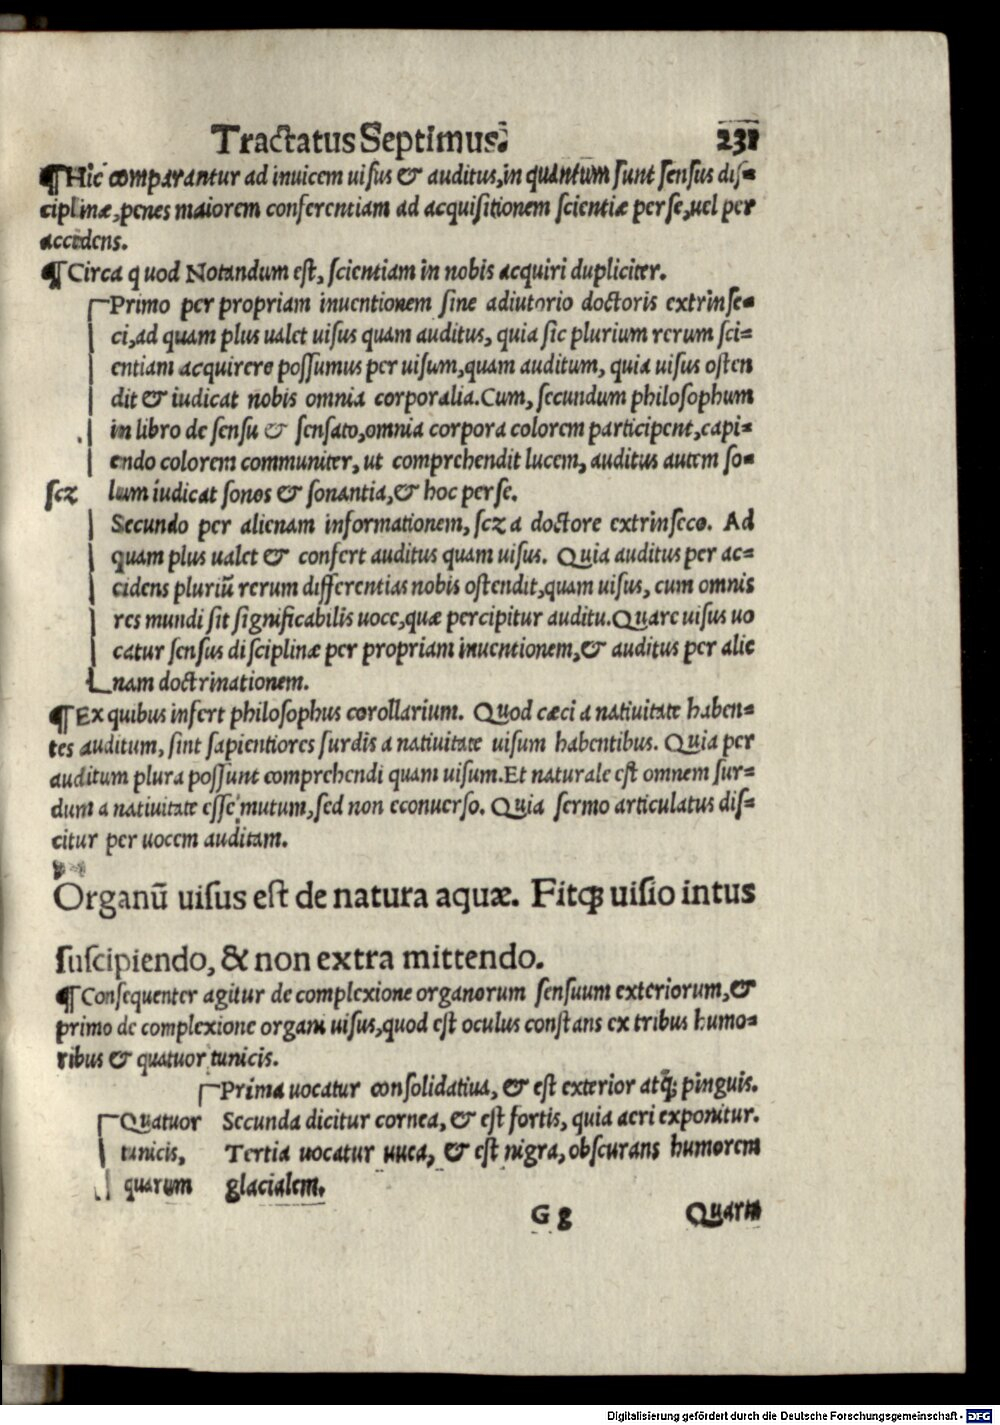 Tractatus Septimus. 231
¶Hic comparantur ad inuicem uisus & auditus, in quantum sunt sensus dis-
ciplinæ, penes maiorem conferentiam ad acquisitionem scientiæ per se, uel per
accidens.
¶Circa quod Notandum est, scientiam in nobis acquiri dupliciter.
Primo per propriam inuentionem sine adiutorio doctoris extrinse-
ci, ad quam plus ualet uisus quam auditus, quia sic plurium rerum sci-
entiam acquirere possumus per uisum, quam auditum, quia uisus osten
dit & iudicat nobis omnia corporalia. Cum, secundum philosophum
in libro de sensu & sensato, omnia corpora colorem participent, capi-
endo colorem communiter, ut comprehendit lucem, auditus autem so-
scz lum iudicat sonos & sonantia, & hoc per se.
Secundo per alienam informationem, scz a doctore extrinseco. Ad
quam plus ualet & confert auditus quam uisus. Quia auditus per ac-
cidens pluriū rerum differentias nobis ostendit, quam uisus, cum omnis
res mundi sit significabilis uoce, quæ percipitur auditu. Quare uisus uo
catur sensus disciplinæ per propriam inuentionem, & auditus per alie
nam doctrinationem.
¶Ex quibus infert philosophus corollarium. Quod cæci a natiuitate haben-
tes auditum, sint sapientiores surdis a natiuitate uisum habentibus. Quia per
auditum plura possunt comprehendi quam uisum. Et naturale est omnem sur-
dum a natiuitate esse mutum, sed non econuerso. Quia sermo articulatus dis-
citur per uocem auditam.
Organū uisus est de natura aquæ. Fitqꝫ uisio intus
suscipiendo, & non extra mittendo.
¶Consequenter agitur de complexione organorum sensuum exteriorum, &
primo de complexione organi uisus, quod est oculus constans ex tribus humo-
ribus & quatuor tunicis.
Prima uocatur consolidatiua, & est exterior atqꝫ pinguis.
Quatuor Secunda dicitur cornea, & est fortis, quia aeri exponitur.
tunicis, Tertia uocatur uuea, & est nigra, obscurans humorem
quarum glacialem.
G g Quarta
Digitalisierung gefördert durch die Deutsche Forschungsgemeinschaft - DFG